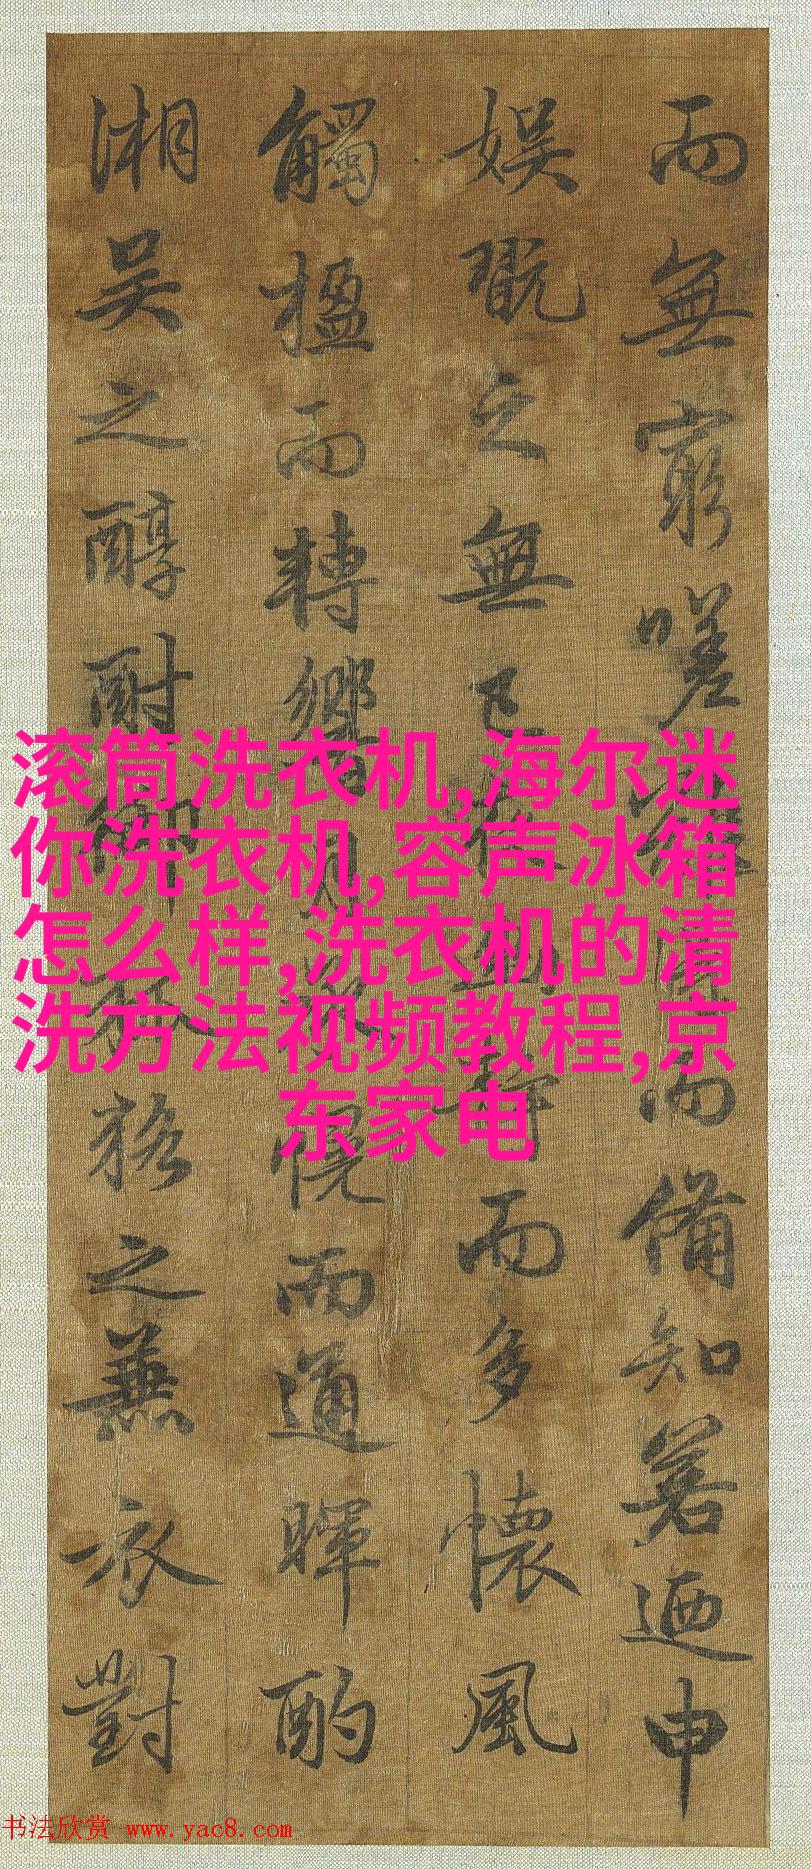 而無窮嗟
而備知著迺申
娱翫之無已
而多懷風
觸楹而轉響
月
而通暉酌
湘吴之醇酎
之無衣對
滚筒洗衣机,海尔迷
你洗衣机,容声冰箱
怎么样,洗衣机的清
洗方法视频教程,京
东家电
书法欣赏 www.yac8.com